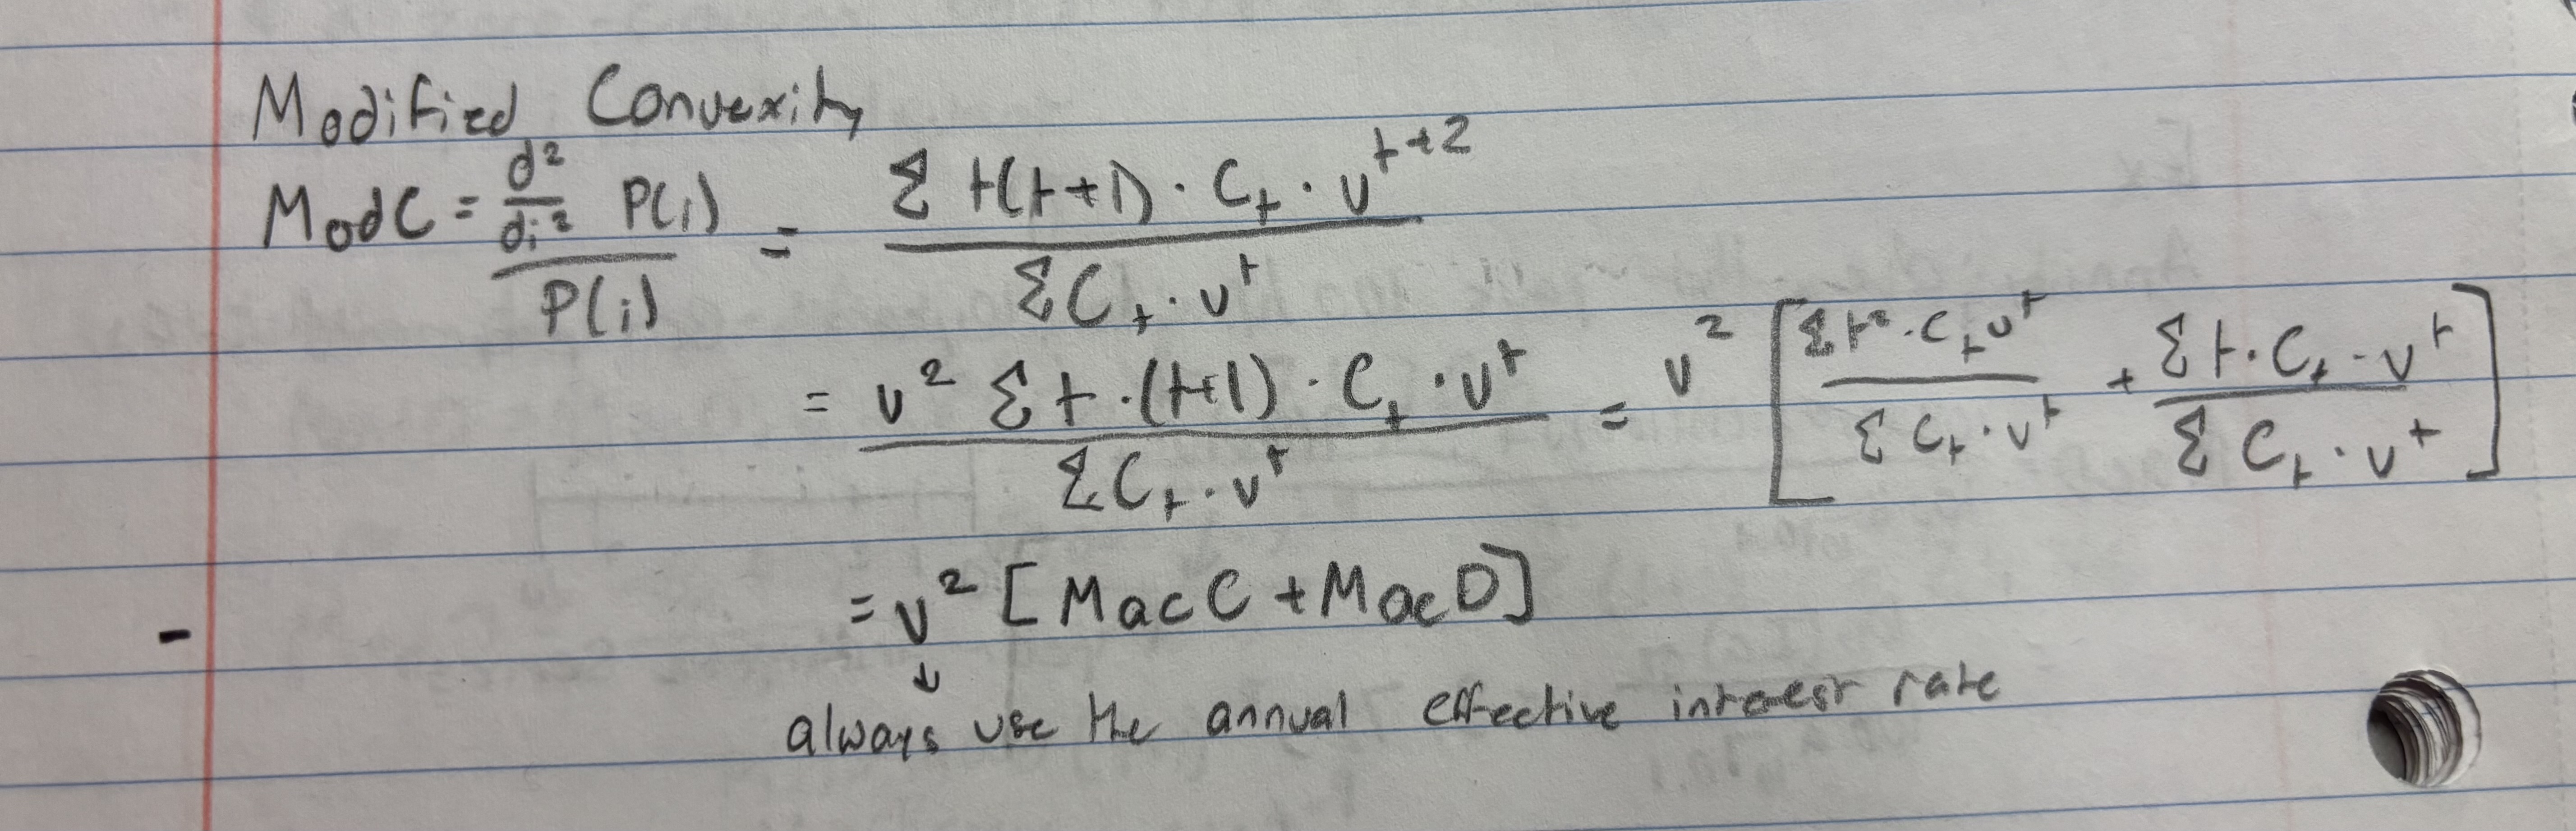 Modified Convexity
ModC = d²/di² P(i) / P(i) = Σ t(t+1) · Cₜ · v^(t+2) / Σ Cₜ · v^t
= v² Σ t · (t+1) · Cₜ · v^t / Σ Cₜ · v^t = v² [ Σ t² · Cₜ v^t / Σ Cₜ · v^t + Σ t · Cₜ · v^t / Σ Cₜ · v^t ]
= v² [MacC + MacD]
↓
always use the annual effective interest rate